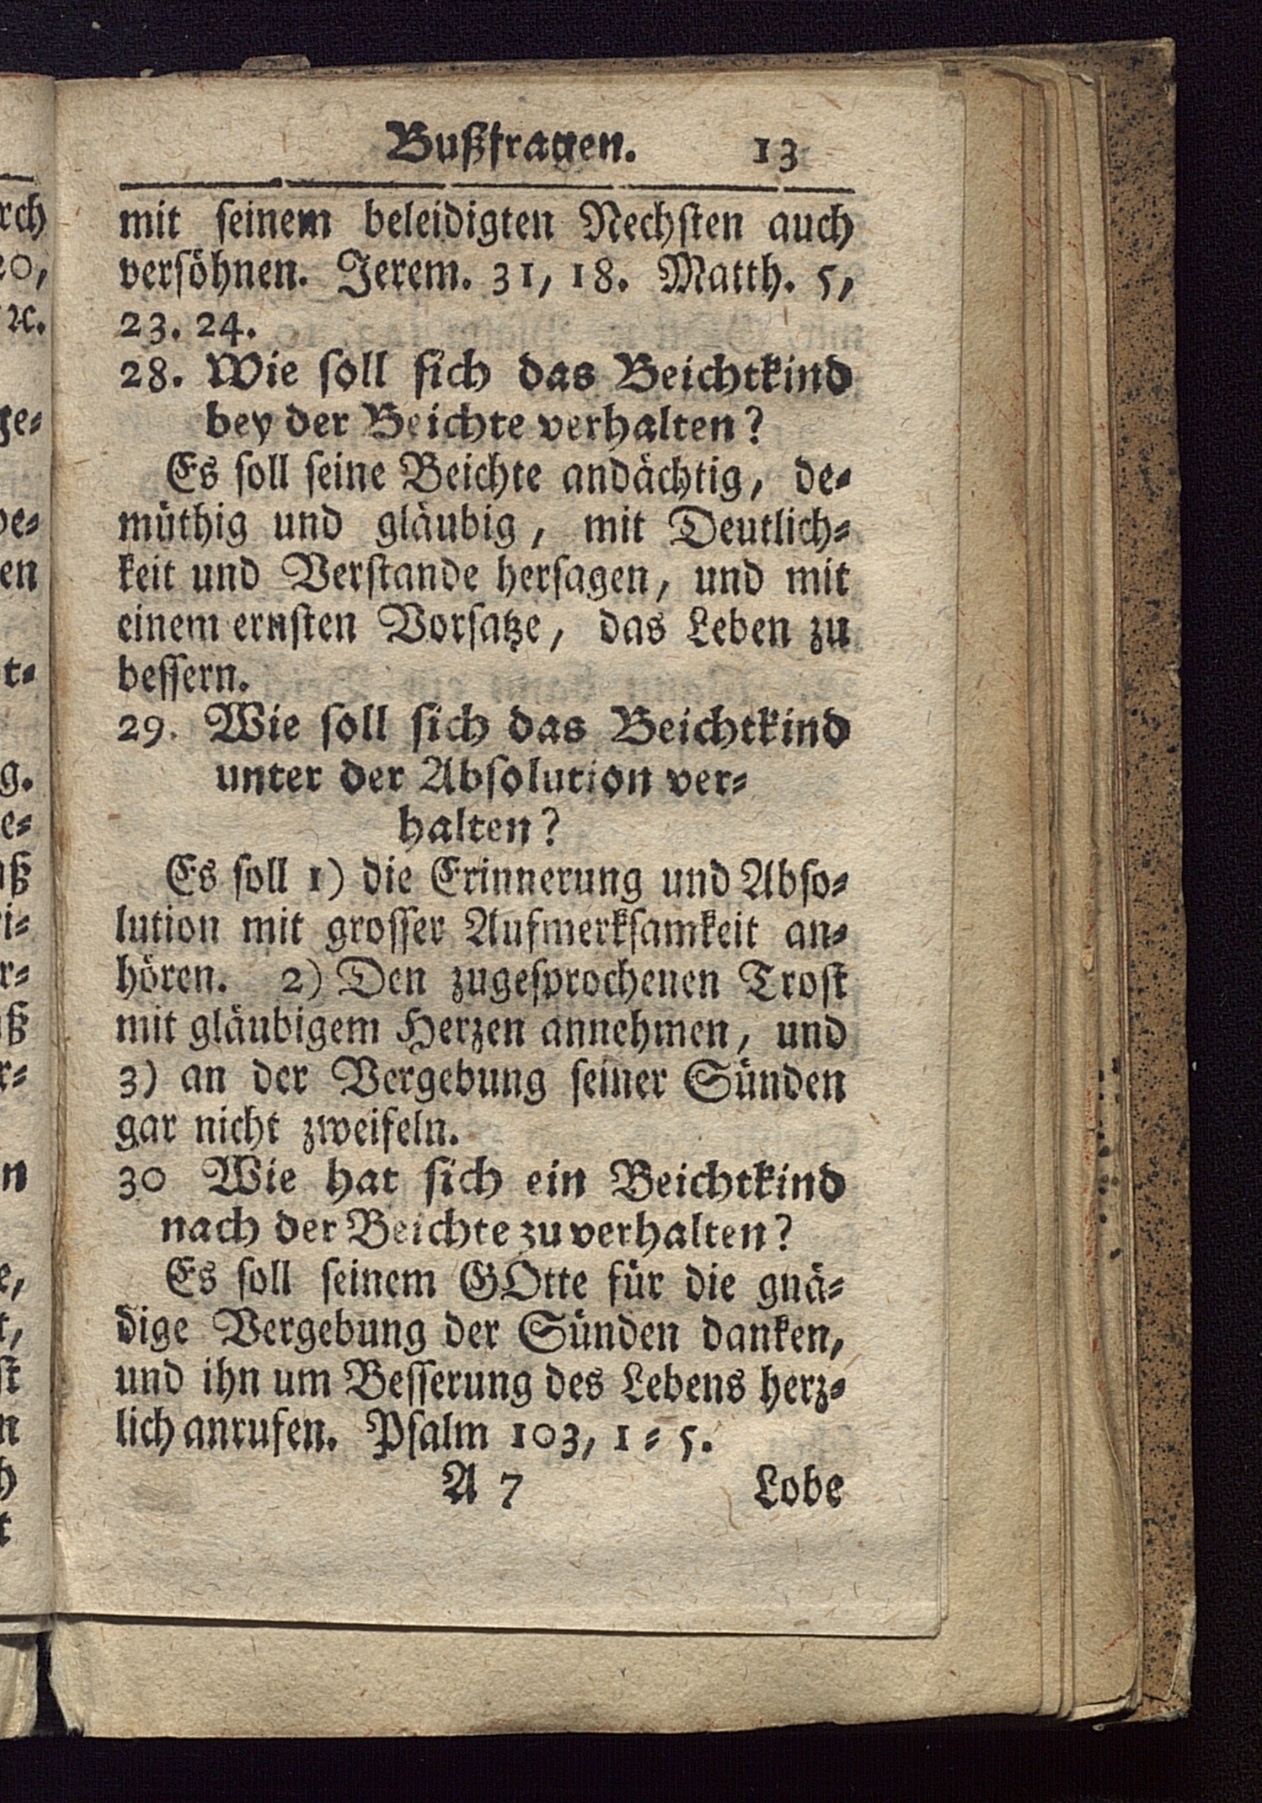 Bußfragen. 13
mit seinem beleidigten Nechsten auch
versöhnen. Jerem. 31, 18. Matth. 5,
23. 24.
28. Wie soll sich das Beichtkind
bey der Beichte verhalten?
Es soll seine Beichte andächtig, de-
müthig und gläubig, mit Deutlich-
keit und Verstande hersagen, und mit
einem ernsten Vorsatze, das Leben zu
bessern.
29. Wie soll sich das Beichtkind
unter der Absolution ver-
halten?
Es soll 1) die Erinnerung und Abso-
lution mit grosser Aufmerksamkeit an-
hören. 2) Den zugesprochenen Trost
mit gläubigem Herzen annehmen, und
3) an der Vergebung seiner Sünden
gar nicht zweifeln.
30 Wie hat sich ein Beichtkind
nach der Beichte zu verhalten?
Es soll seinem GOtte für die gnä-
dige Vergebung der Sünden danken,
und ihn um Besserung des Lebens herz-
lich anrufen. Psalm 103, 1-5.
A 7 Lobe